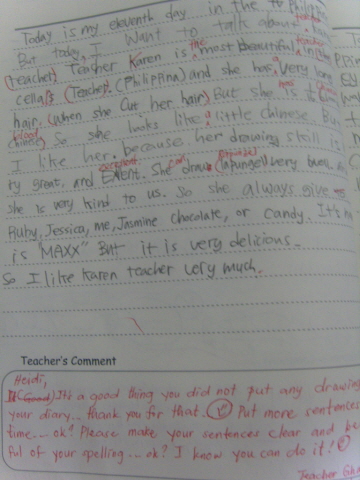 Today is my eleventh day in the Philip
But today, I Want to talk about teacher
(teacher) Teacher Karen is the most beautiful in the
cella's (Teacher. (Philippina) and she has very long
hair. (when she cut her hair) But she is
blood
chinese) So she looks like a little Chinese. But
I like her, because her drawing skill is
ry great, and excellent She can draw very
she is very kind to us. So she always give
Ruby, Jessica, me, Jasmine chocolate, or candy. It's
is "MAXX" But it is very delicious.
So I like Karen teacher very much.
Teacher's Comment
Heidi,
It's a good thing you did not put any drawing
your diary... thank you for that. Put more sentences
time... ok? Please make your sentences clear and be
ful of your spelling... ok? I know you can do it!
Teacher